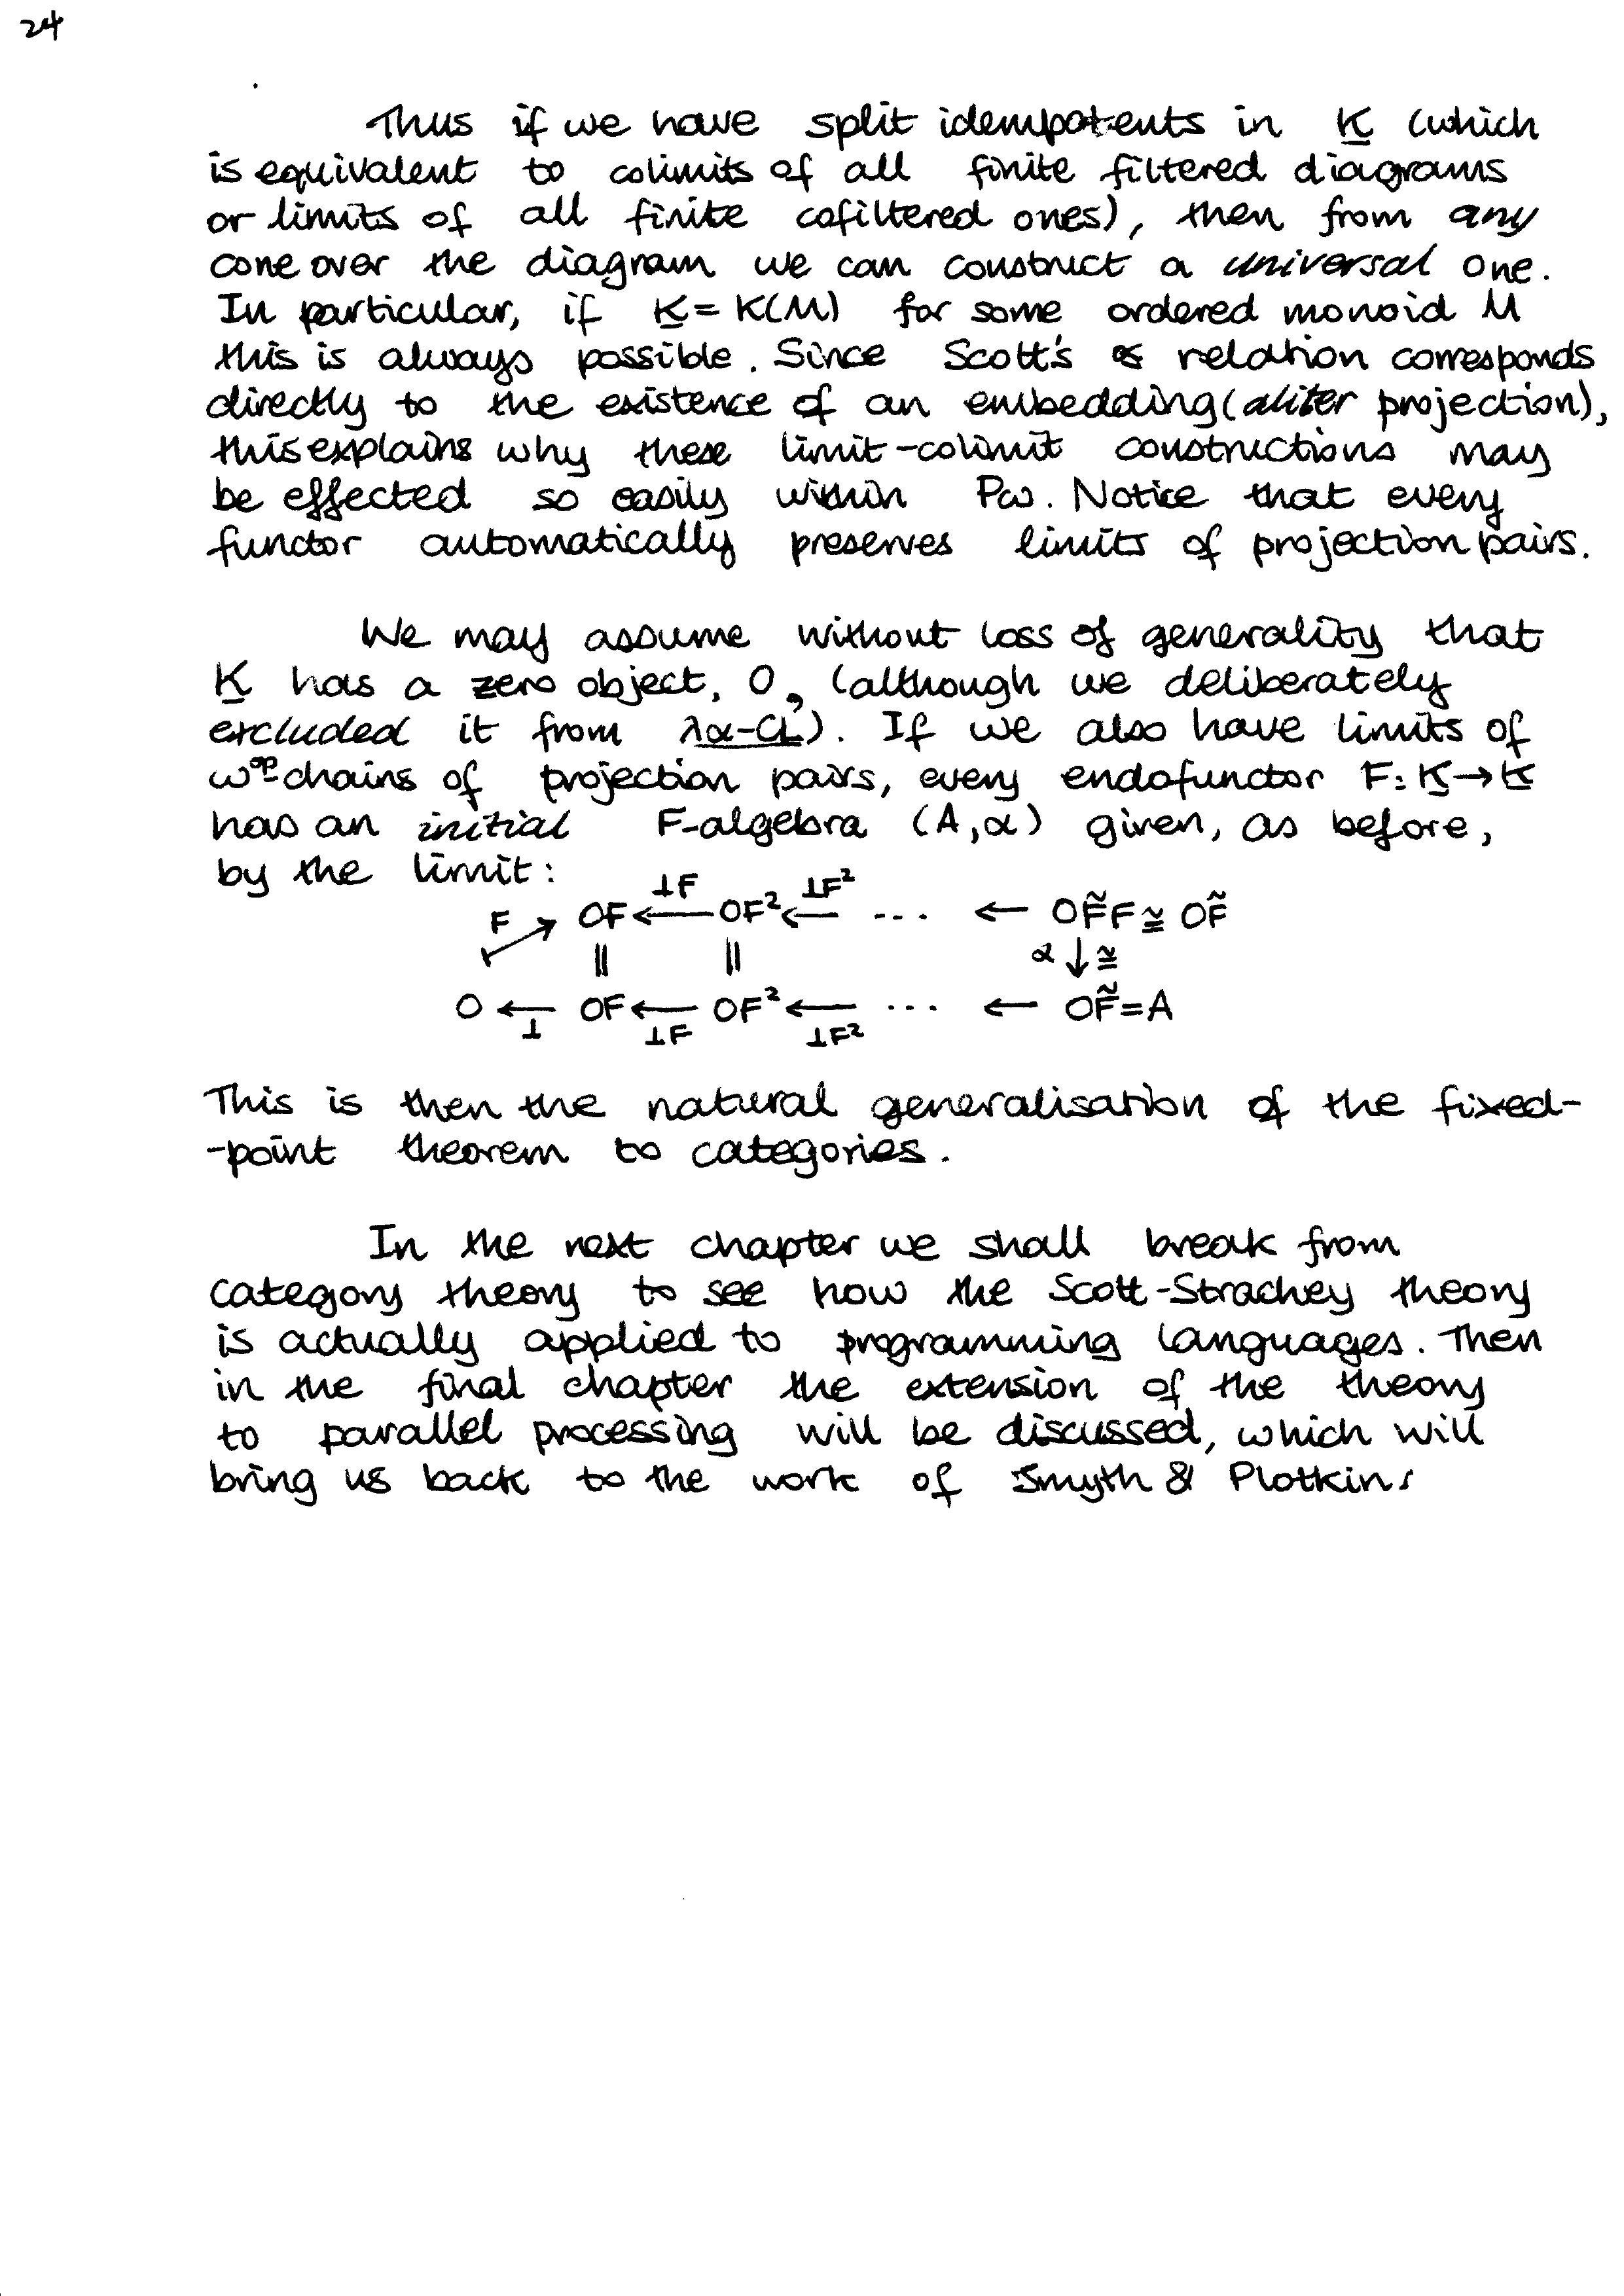 24
Thus if we have split idempotents in K (which
is equivalent to colimits of all finite filtered diagrams
or limits of all finite cofiltered ones), then from any
cone over the diagram we can construct a universal one.
In particular, if K = K(M) for some ordered monoid M
this is always possible. Since Scott's relation corresponds
directly to the existence of an embedding (aliter projection),
this explains why these limit-colimit constructions may
be effected so easily within Pω. Notice that every
functor automatically preserves limits of projection pairs.
We may assume without loss of generality that
K has a zero object, O, (although we deliberately
excluded it from λα-CL). If we also have limits of
ω^op chains of projection pairs, every endofunctor F: K → K
has an initial F-algebra (A,α) given, as before,
by the limit:
⊥F ⊥F²
F ↦ OF ← OF² ← ... ← OF̃F ≅ OF̃
|| || α ↓ ≅
O ← OF ← OF² ← ... ← OF̃ = A
⊥ ⊥F ⊥F²
This is then the natural generalisation of the fixed-
-point theorem to categories.
In the next chapter we shall break from
category theory to see how the Scott-Strachey theory
is actually applied to programming languages. Then
in the final chapter the extension of the theory
to parallel processing will be discussed, which will
bring us back to the work of Smyth & Plotkin.